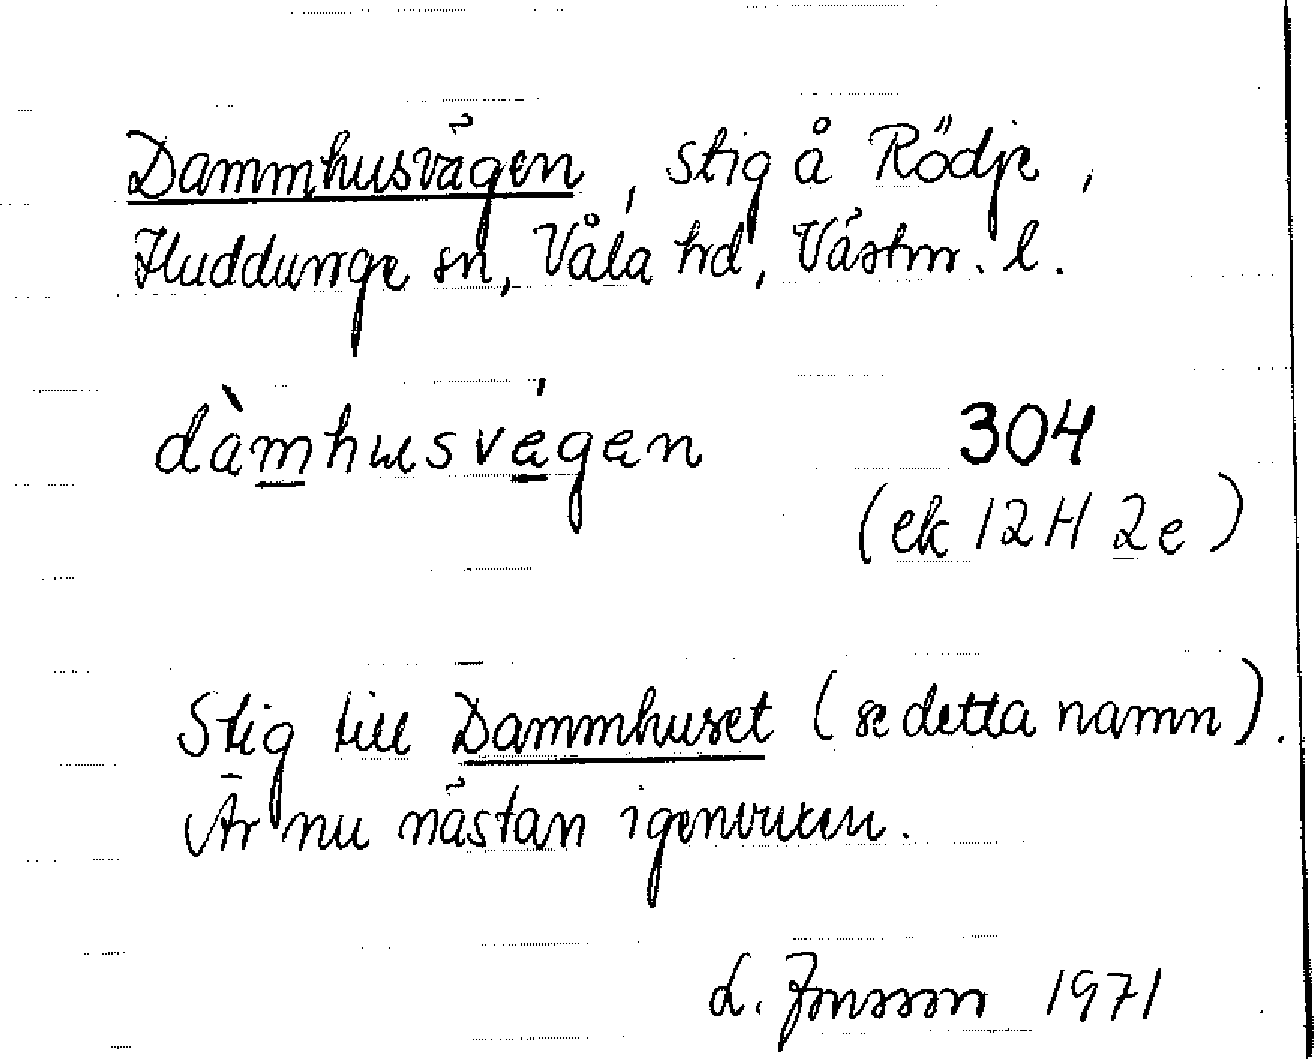 Dammhusvägen, stig å Rödje,
Huddunge sn, Våla hd, Västm. l.
dàmhusvägen 304
(ek 12H 2e)
Stig till Dammhuset (se detta namn).
Är nu nästan igenvuxen.
L. Jonsson 1971